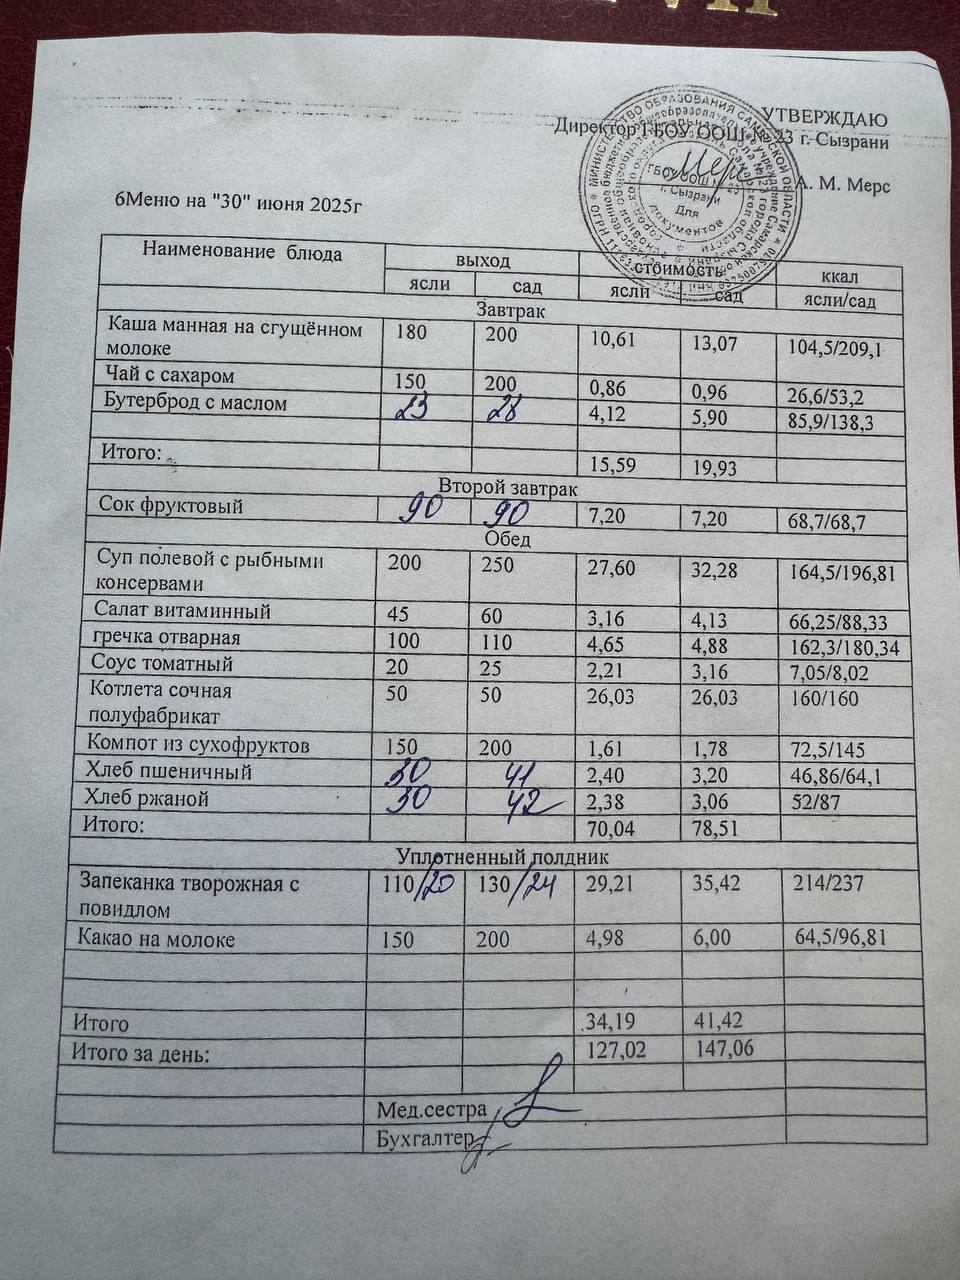 УТВЕРЖДАЮ
Директор ГБОУ ООШ № 23 г. Сызрани
А. М. Мерс
6Меню на "30" июня 2025г
Наименование блюда выход стоимость ккал
ясли сад ясли сад ясли/сад
Завтрак
Каша манная на сгущённом молоке 180 200 10,61 13,07 104,5/209,1
Чай с сахаром 150 200 0,86 0,96 26,6/53,2
Бутерброд с маслом 23 28 4,12 5,90 85,9/138,3
Итого: 15,59 19,93
Второй завтрак
Сок фруктовый 90 90 7,20 7,20 68,7/68,7
Обед
Суп полевой с рыбными консервами 200 250 27,60 32,28 164,5/196,81
Салат витаминный 45 60 3,16 4,13 66,25/88,33
гречка отварная 100 110 4,65 4,88 162,3/180,34
Соус томатный 20 25 2,21 3,16 7,05/8,02
Котлета сочная полуфабрикат 50 50 26,03 26,03 160/160
Компот из сухофруктов 150 200 1,61 1,78 72,5/145
Хлеб пшеничный 30 41 2,40 3,20 46,86/64,1
Хлеб ржаной 30 42 2,38 3,06 52/87
Итого: 70,04 78,51
Уплотненный полдник
Запеканка творожная с повидлом 110/20 130/24 29,21 35,42 214/237
Какао на молоке 150 200 4,98 6,00 64,5/96,81
Итого 34,19 41,42
Итого за день: 127,02 147,06
Мед.сестра
Бухгалтер